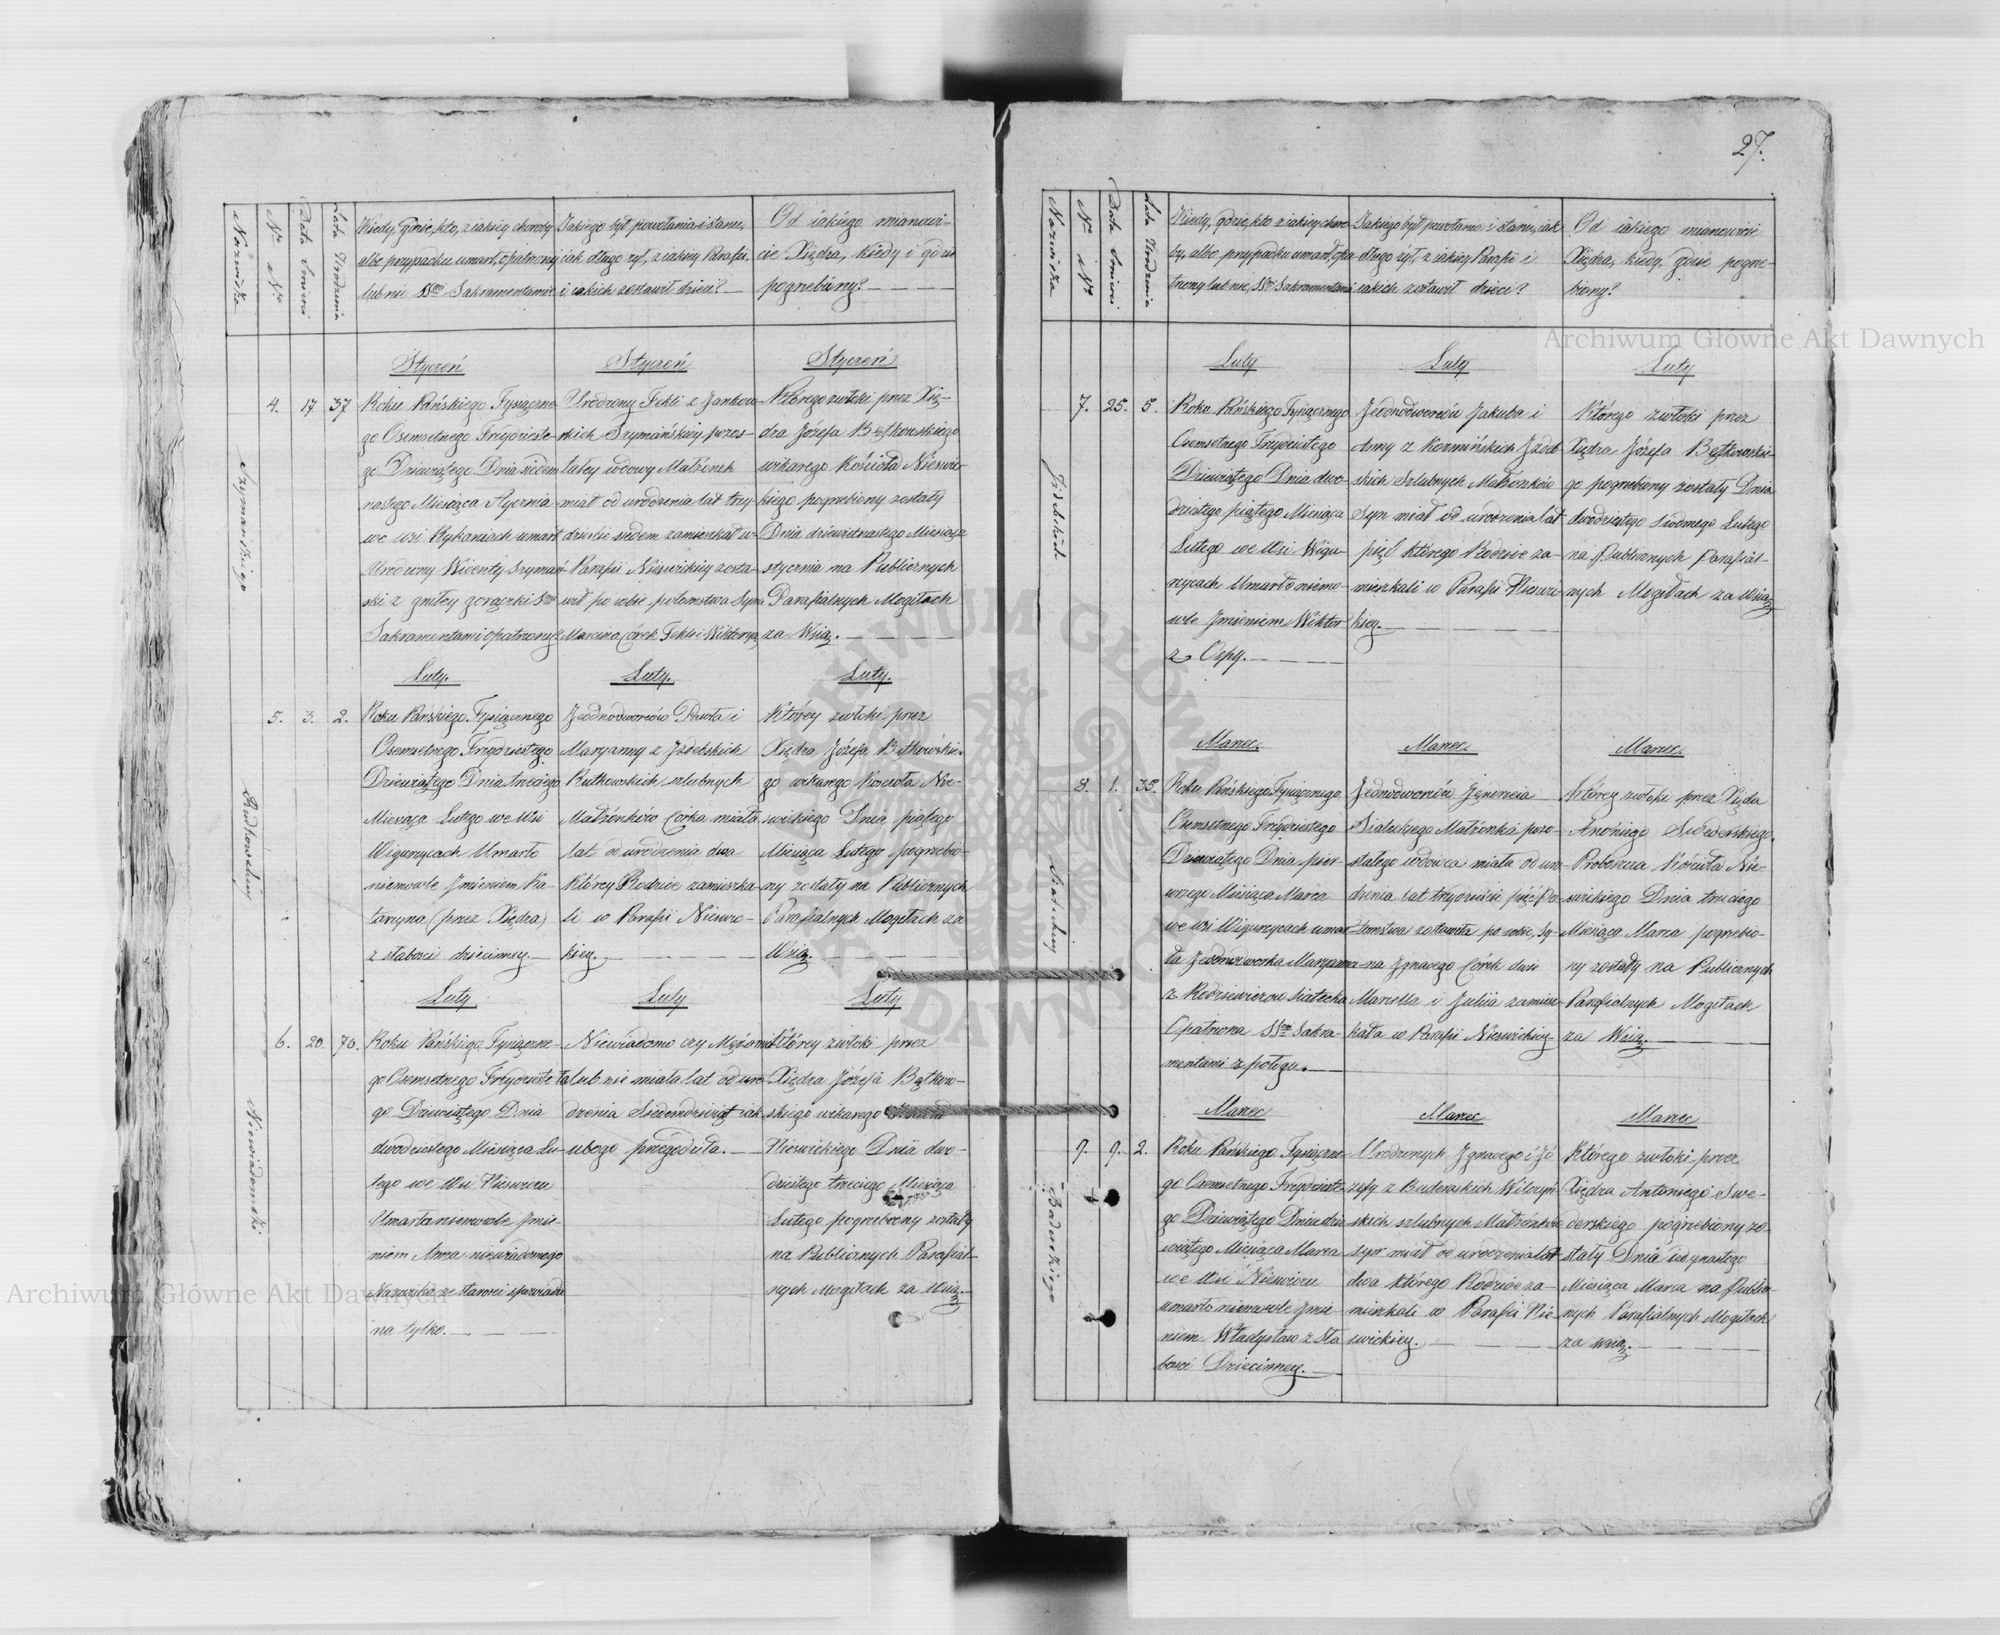 27.
Nazwiska
Nro Nro
Data Śmierci
Lata Urodzenia
Kiedy, gdzie, kto, z iakiey choroby
albo przypadku umarł, opatrzony
lub nie SSmi Sakramentami
Jakiego był powołania i stanu,
iak długo żył, z iakiey Parafii,
i iakich zostawił dzieci?
Od iakiego mianowi-
cie Xiędza, kiedy i gdzie
pogrzebiony?
Styczeń
Styczeń
Styczeń
Szymańskiego
4. 17 37
Roku Pańskiego Tysiączne-
go Osemsetnego Trzydzieste-
go Dziewiątego Dnia siedem
nastego Miesiąca Stycznia
we wsi Rykaniach umarł
Urodzony Wicenty Szymań-
ski z gniłey gorączki Smi
Sakramentami opatrzony
Urodzony Tekli z Jankow-
skich Szymańskiey pozos-
tałey wdowy Małżonek
miał od urodzenia lat trzy-
dzieście siedem zamieszkał w
Parafii Nieświckiey zosta-
wił po sobie potomstwa Syna
Marcina Córek Teklę i Wiktoryą
Którego zwłoki przez Xię-
dza Józefa Bątkowskiego
wikarego Kościoła Nieswic-
kiego pogrzebiony zostały
Dnia dziewietnastego Miesiąca
stycznia na Publicznych
Parafialnych Mogiłach
za Wsią.
Luty.
Luty.
Luty.
Rutkowskiey
5. 3. 2.
Roku Pańskiego Tysiącznego
Osemsetnego Trzydziestego
Dziewiątego Dnia trzeciego
Miesiąca Lutego we Wsi
Wigurzycach Umarło
niemowle Jmieniem Ka-
taryna (przez Xiędza)
z słabości dziecinney
Jednodworców Pawła i
Maryanny z Jzdebskich
Rutkowskich szlubnych
Małżonków Córka miała
lat od urodzenia dwa
Którey Rodzice zamieszka-
li w Parafii Nieswic-
kiey.
Którey zwłoki przez
Xiędza Józefa Bątkowskie-
go wikarego Kościoła Nie-
swickiego Dnia piątego
Miesiąca Lutego pogrzebio-
ny zostały na Publicznych
Parafialnych Mogiłach za
Wsią.
Luty
Luty
Luty
Niewiadomski.
6. 20. 70.
Roku Pańskiego Tysiączne-
go Osemsetnego Trzydzieste
go Dziewiątego Dnia
dwudziestego Miesiąca Lu-
tego we Wsi Nieswiczu
Umarła niemowle Jmie-
niem Anna niewiadomego
Nazwiska ze starosci spowiada
na tylko.
Niewiadomo czy Mężam
ta lub nie miała lat od uro
dzenia Siedemdziesiąt iak
ubogo
Którey zwłoki przez
Xiędza Józefa Bątkow-
skiego wikarego
Nieswickiego Dnia dwu-
dziestego trzeciego Miesiąca
Lutego pogrzebiony zostały
na Publicznych Parafial-
nych Mogiłach za Wsią.
Nazwiska
Nro Nro
Data Śmierci
Lata Urodzenia
Kiedy, gdzie, kto z iakiey choro-
by, albo przypadku umarł, opa-
trzony lub nie, SSmi Sakramentami
Jakiego był powołania i stanu, iak
długo żył, z iakiey Parafii i
iakich zostawił dzieci?
Od iakiego mianowicie
Xiędza, kiedy, gdzie pogrze-
biony?
Luty
Luty
Luty
7. 25. 5.
Roku Pańskiego Tysiącznego
Osemsetnego Trzydziestego
Dziewiątego Dnia dwu-
dziestego piątego Miesiąca
Lutego we Wsi Wigu-
rzycach Umarło niemo-
wle Jmieniem Wiktor
z Ospy.
Jednodworców Jakuba i
Anny z Kozmińskich Jzdeb-
skich Szlubnych Małżonków
Syn miał od urodzenia lat
pięć którego Rodzice za-
mieszkali w Parafii Nieswic
kiey.
Którego zwłoki przez
Xiędza Józefa Bątkowskie-
go pogrzebiony zostały Dnia
dwudziestego siodmego Lutego
na Publicznych Parafial-
nych Mogiłach za Wsią
Marzec.
Marzec.
Marzec.
Siateckiey
8. 1. 35.
Roku Pańskiego Tysiącznego
Osemsetnego Trzydziestego
Dziewiątego Dnia pier-
wszego Miesiąca Marca
we wsi Wigurzycach umar-
ła Jednodworka Maryanna
z Rodziewiczow Siatecka
Opatrzona SSmi Sakra-
mentami z połogu.
Jednodworca Jgnacia
Siateckiego Małżonka pozo-
stałego wdowca miała od uro-
dzenia lat trzydzieście pięć Po-
tomstwa zostawiła po sobie, Sy-
na Jgnacego Córek dwie
Marcella i Juliia zamiesz-
kała w Parafii Nieswickiey
Którey zwłoki przez Xiędza
Antoniego Swederskiego
Proboszcza Kościoła Nie-
swickiego Dnia trzeciego
Miesiąca Marca pogrzebio-
ny zostały na Publicznych
Parafialnych Mogiłach
za Wsią.
Marzec
Marzec
Marzec
9. 9. 2.
Roku Pańskiego Tysiączne-
go Osemsetnego Trzydzieste-
go Dziewiątego Dnia dzie
wiątego Miesiąca Marca
we Wsi Nieswiczu
umarło niemowle Jmie-
niem Władysław z Sła
bosci Dziecinney.
Urodzonych Jgnacego i Jó
zefy z Baderskich Wilczyń-
skich szlubnych Małżonków
syn miał od urodzenia lat
dwa którego Rodzice za-
mieszkali w Parafii Nie-
swickiey.
Którego zwłoki przez
Xiędza Antoniego Swe-
derskiego pogrzebiony zo-
stały Dnia iedynastego
Miesiąca Marca na Publicz-
nych Parafialnych Mogiłach
za wsią.
Archiwum Główne Akt Dawnych
Archiwum Główne Akt Dawnych